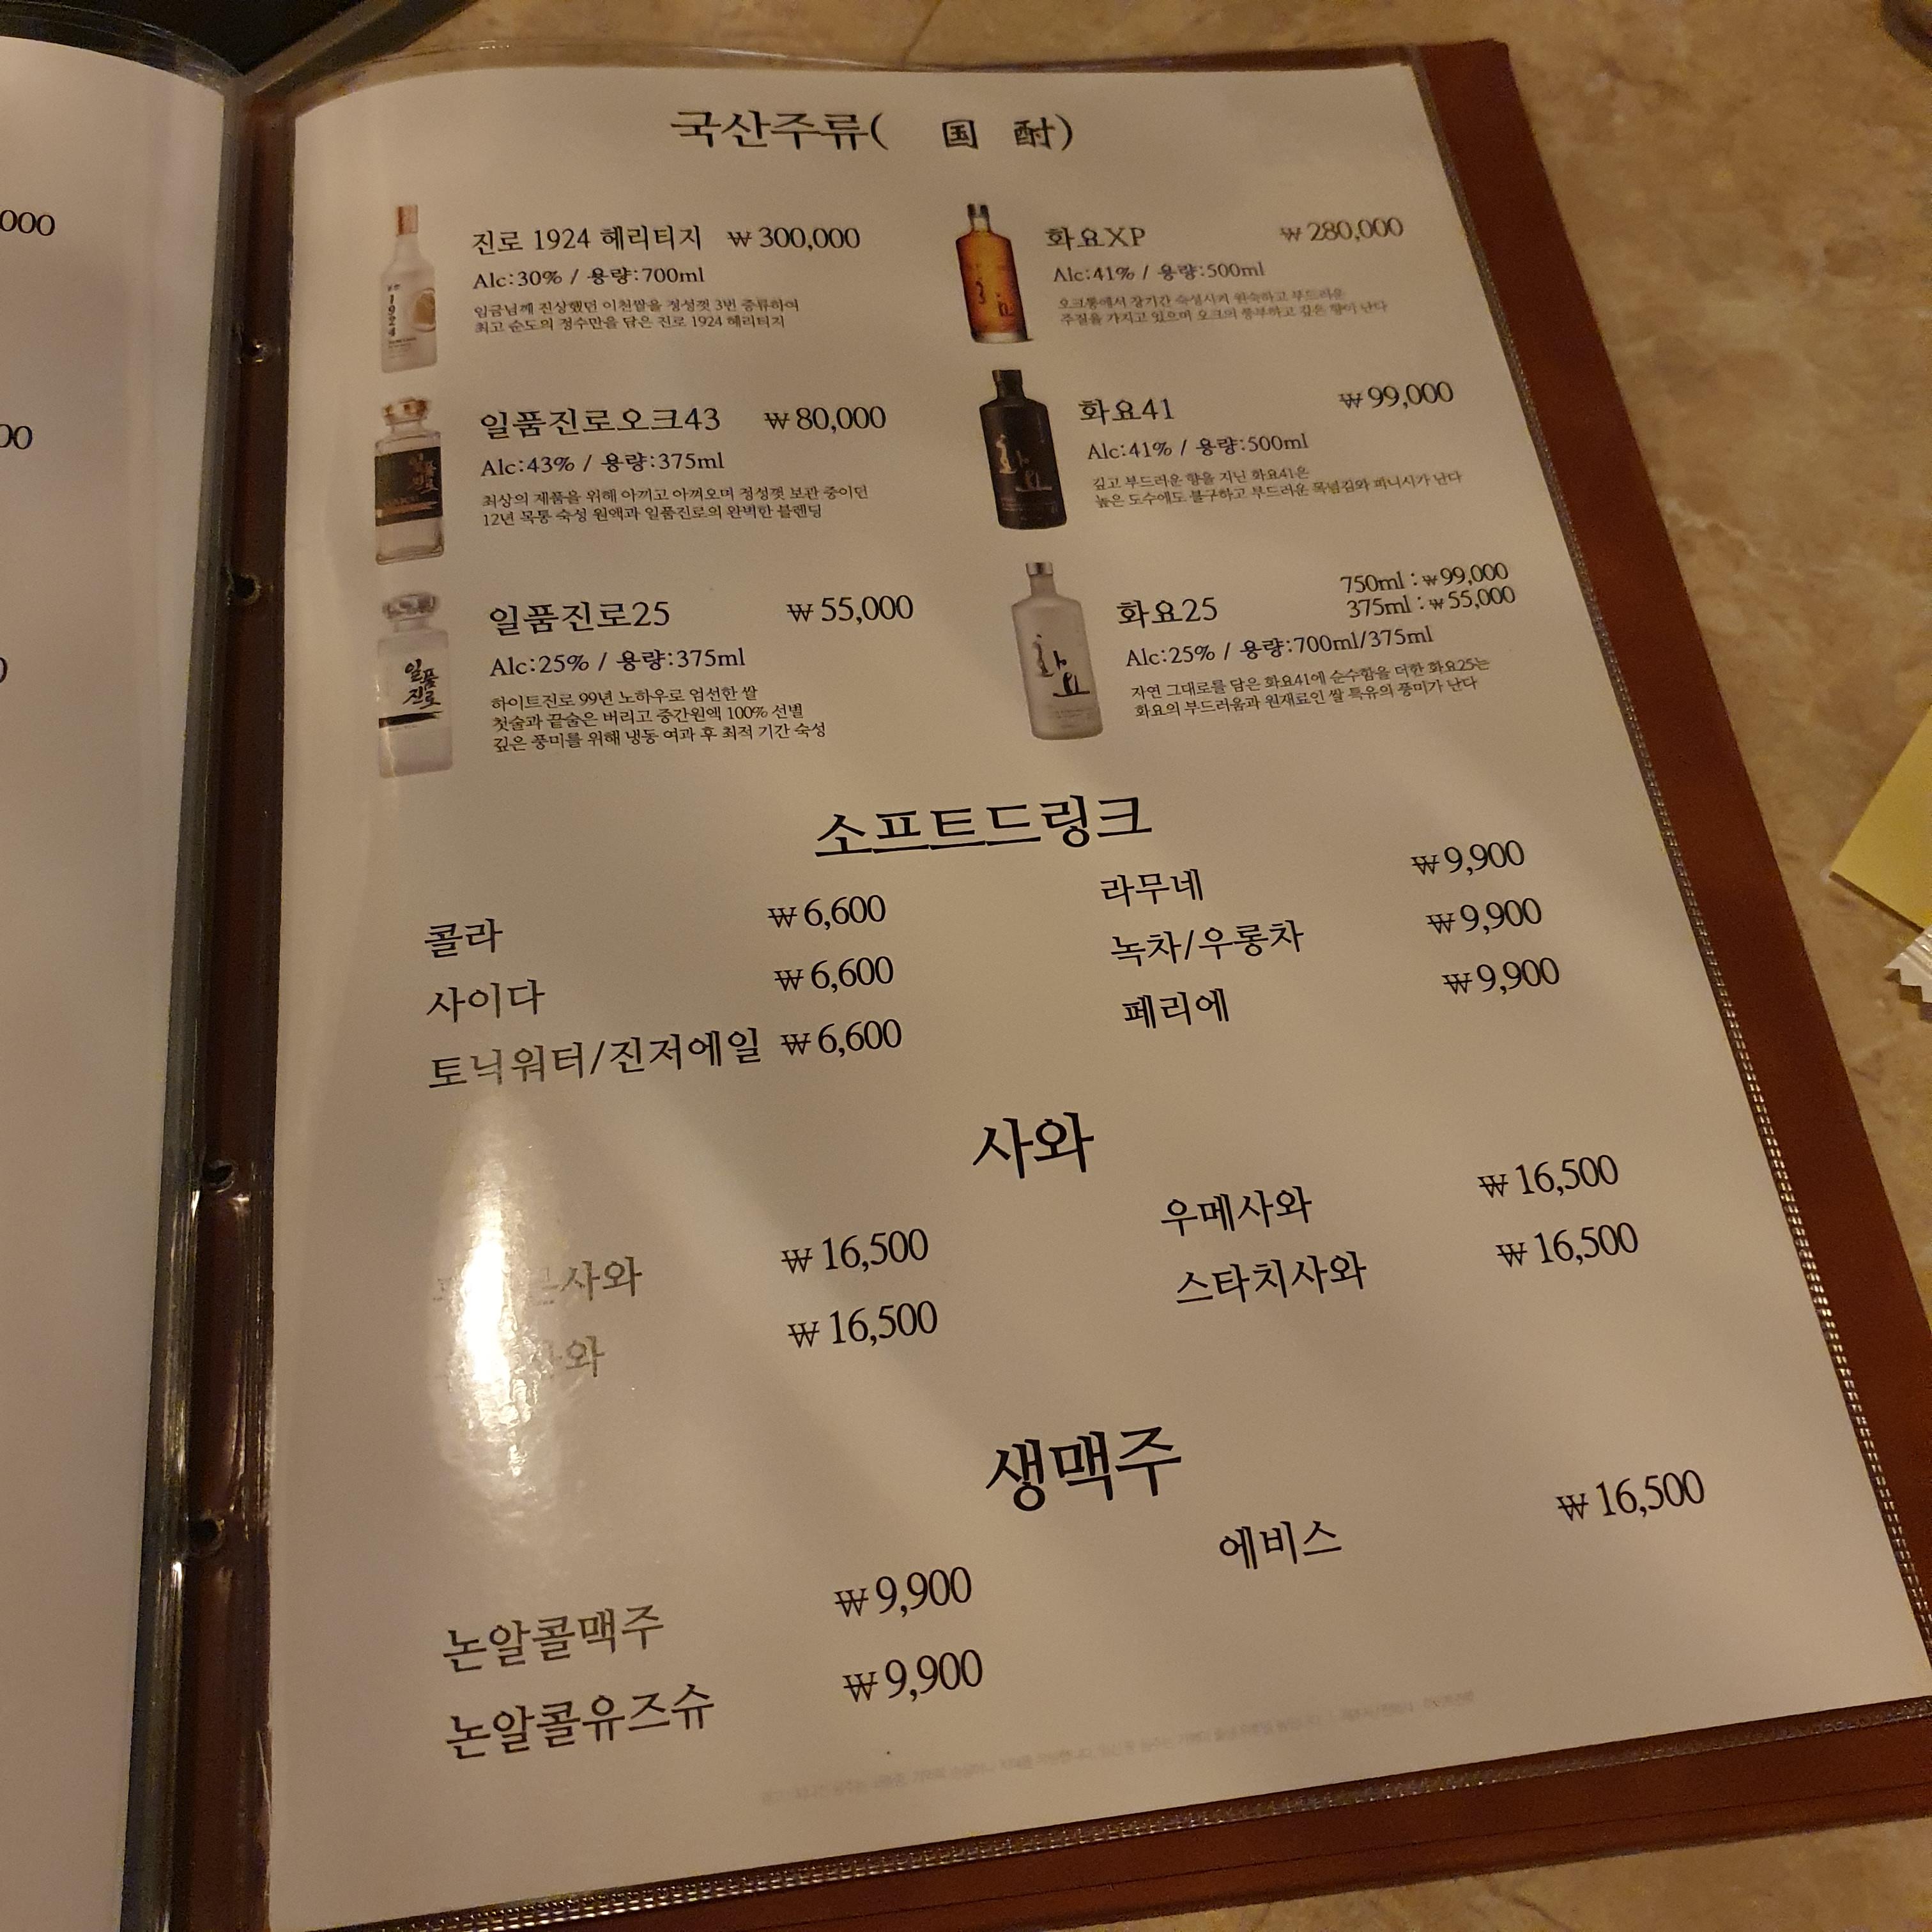 000
00
0
국산주류( 国 酎)
진로 1924 헤리티지 ₩ 300,000
Alc:30% / 용량:700ml
임금님께 진상했던 이천쌀을 정성껏 3번 증류하여
최고 순도의 정수만을 담은 진로 1924 헤리티지
일품진로오크43 ₩ 80,000
Alc:43% / 용량:375ml
최상의 제품을 위해 아끼고 아껴오며 정성껏 보관 중이던
12년 목통 숙성 원액과 일품진로의 완벽한 블렌딩
일품진로25 ₩ 55,000
Alc:25% / 용량:375ml
하이트진로 99년 노하우로 엄선한 쌀
첫술과 끝술은 버리고 중간원액 100% 선별
깊은 풍미를 위해 냉동 여과 후 최적 기간 숙성
화요XP ₩ 280,000
Alc:41% / 용량:500ml
오크통에서 장기간 숙성시켜 원숙하고 부드러운
주질을 가지고 있으며 오크의 풍부하고 깊은 향이 난다
화요41 ₩ 99,000
Alc:41% / 용량:500ml
깊고 부드러운 향을 지닌 화요41은
높은 도수에도 불구하고 부드러운 목넘김와 피니시가 난다
750ml : ₩ 99,000
화요25 375ml : ₩ 55,000
Alc:25% / 용량:700ml/375ml
자연 그대로를 담은 화요41에 순수함을 더한 화요25는
화요의 부드러움과 원재료인 쌀 특유의 풍미가 난다
1924
일품
진로
일품
진로
화요
화요
화요
소프트드링크
콜라 ₩ 6,600
사이다 ₩ 6,600
토닉워터/진저에일 ₩ 6,600
라무네 ₩ 9,900
녹차/우롱차 ₩ 9,900
페리에 ₩ 9,900
사와
사와 ₩ 16,500
사와 ₩ 16,500
우메사와 ₩ 16,500
스타치사와 ₩ 16,500
생맥주
논알콜맥주 ₩ 9,900
논알콜유즈슈 ₩ 9,900
에비스 ₩ 16,500